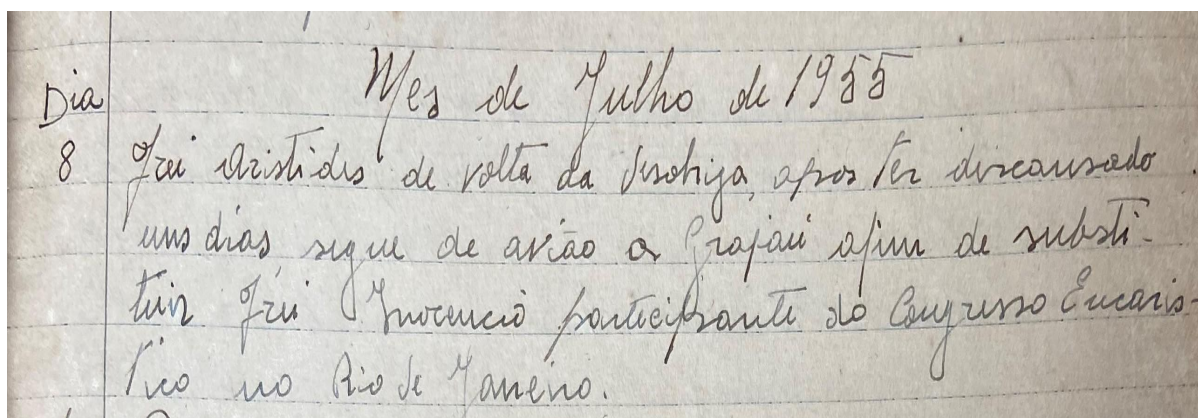 Mes de Julho de 1955
Dia
8 Frei Aristides de volta da desobriga, apos ter discansado
uns dias, segue de avião a Grajaú afim de substi-
tuir Frei Inocencio participante do Congresso Eucaris-
tico no Rio de Janeiro.